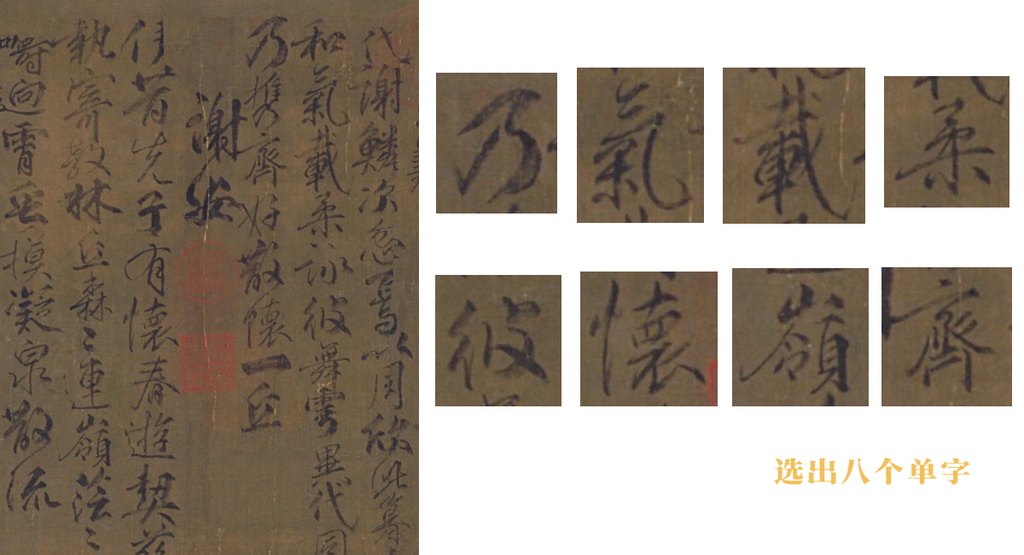 代謝鱗次忽焉以周欣此暮
和氣載柔詠彼舞雩異代同
乃攜齊好散懷一丘
謝安
伊昔先子有懷春遊契茲
執寄敖林丘森〻連嶺茫〻
疇迥霄垂凝泉散流
乃 氣 載 柔
彼 懷 嶺 齊
选出八个单字